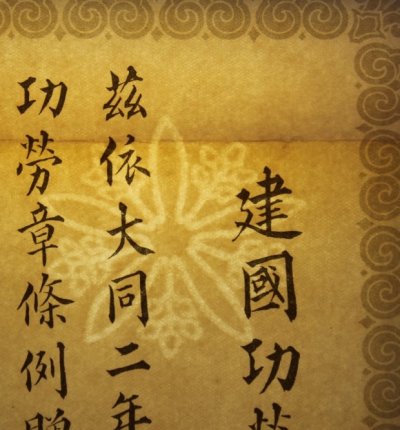 建國功勞
茲依大同二年
功勞章條例贈